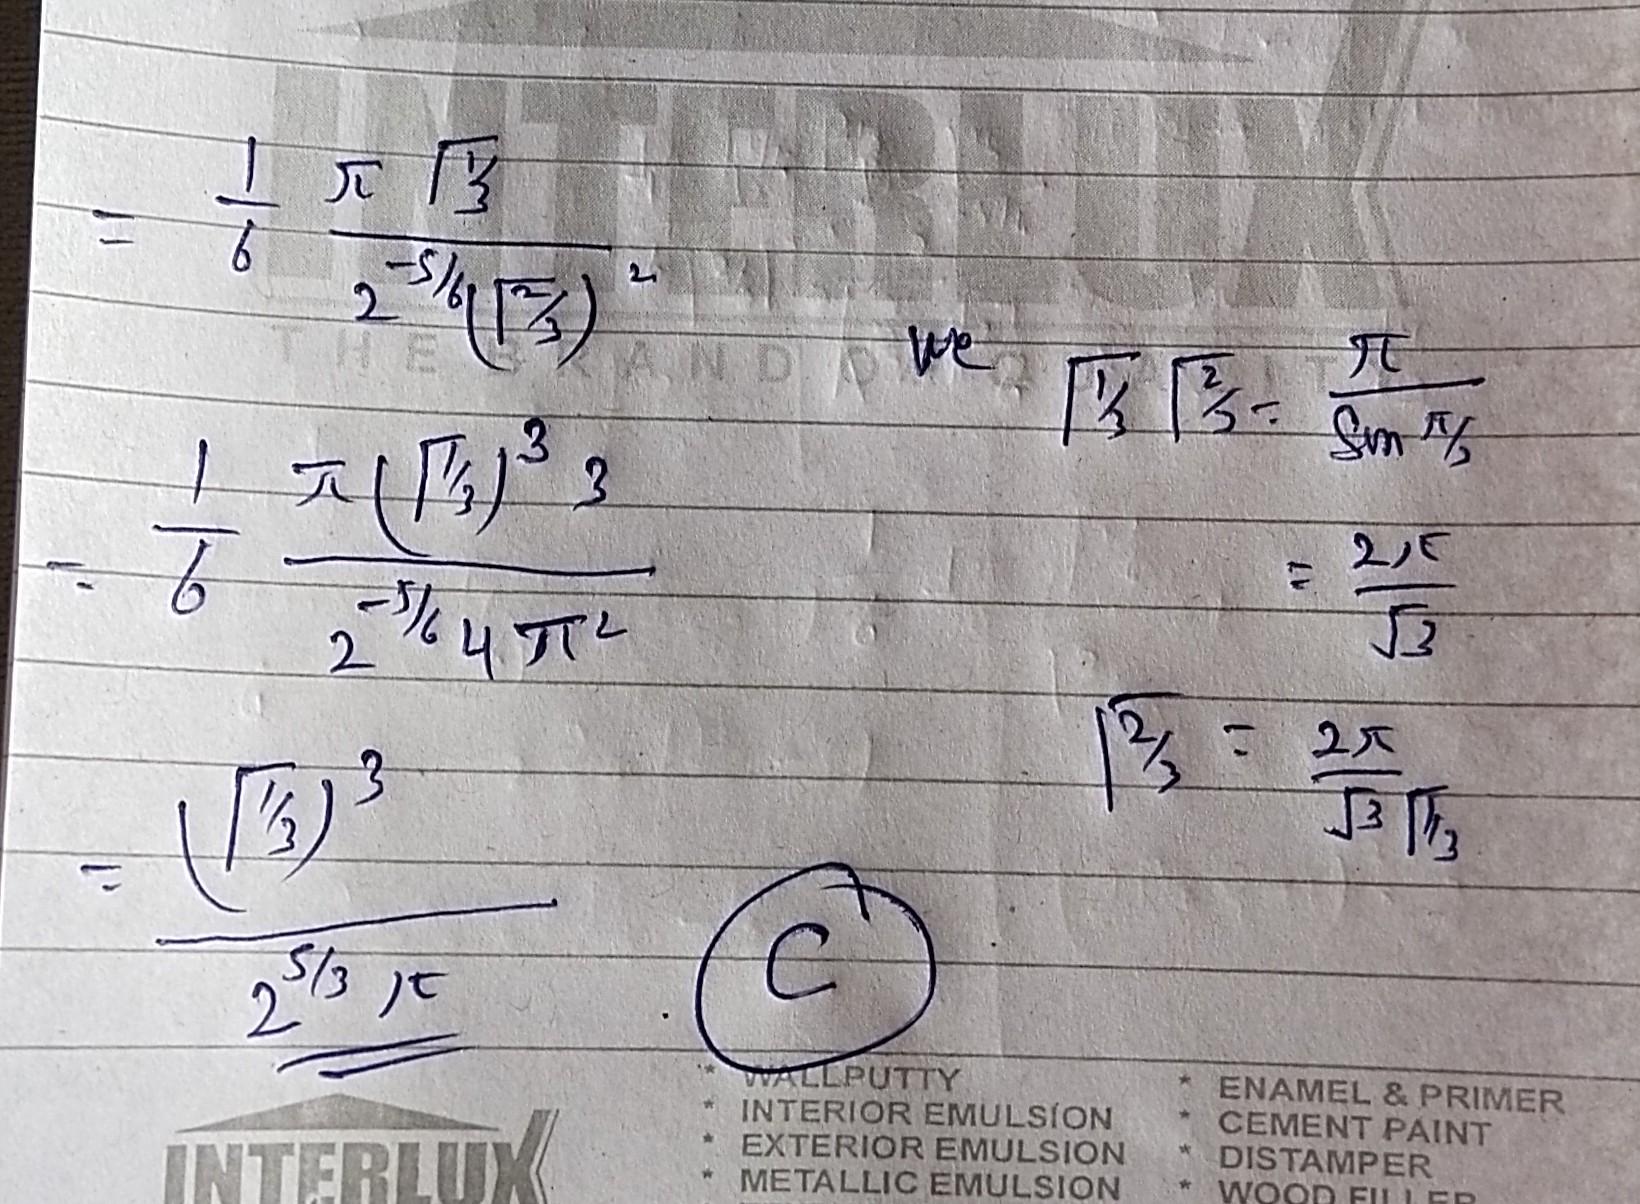 INTERLUX
THE BRAND OF QUALITY
= 1/6 π Γ1/3 / 2^(-5/6) (Γ2/3)^2
we Γ1/3 Γ2/3 = π / Sin π/3
= 1/6 π (Γ1/3)^3 3 / 2^(-5/6) 4 π^2
= 2π / √3
Γ2/3 = 2π / √3 Γ1/3
= (Γ1/3)^3 / 2^(5/3) π
C
* WALLPUTTY
* INTERIOR EMULSION
* EXTERIOR EMULSION
* METALLIC EMULSION
* ENAMEL & PRIMER
* CEMENT PAINT
* DISTAMPER
* WOOD FILLER
INTERLUX